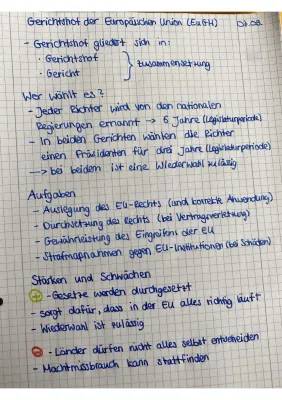 Gerichtshof der Europäischen Union (EuGH)
- Gerichtshof gliedert sich in:
• Gerichtshof
• Gericht
} Zusammensetzung
Wer wählt es?
- Jeder Richter wird von den nationalen
Regierungen ernannt → 6 Jahre (Legislaturperiode)
- In beiden Gerichten wählen die Richter
einen Präsidenten für drei Jahre (Legislaturperiode)
—> bei beidem ist eine Wiederwahl zulässig
Aufgaben
- Auslegung des EU-Rechts (und korrekte Anwendung)
- Durchsetzung des Rechts (bei Vertragsverletzung)
- Gewährleistung des Eingreifens der EU
- Strafmaßnahmen gegen EU-Institutionen (bei Schäden)
Stärken und Schwächen
⊕ - Gesetze werden durchgesetzt
- sorgt dafür, dass in der EU alles richtig läuft
- Wiederwahl ist zulässig
⊖ - Länder dürfen nicht alles selbst entscheiden
- Machtmissbrauch kann stattfinden